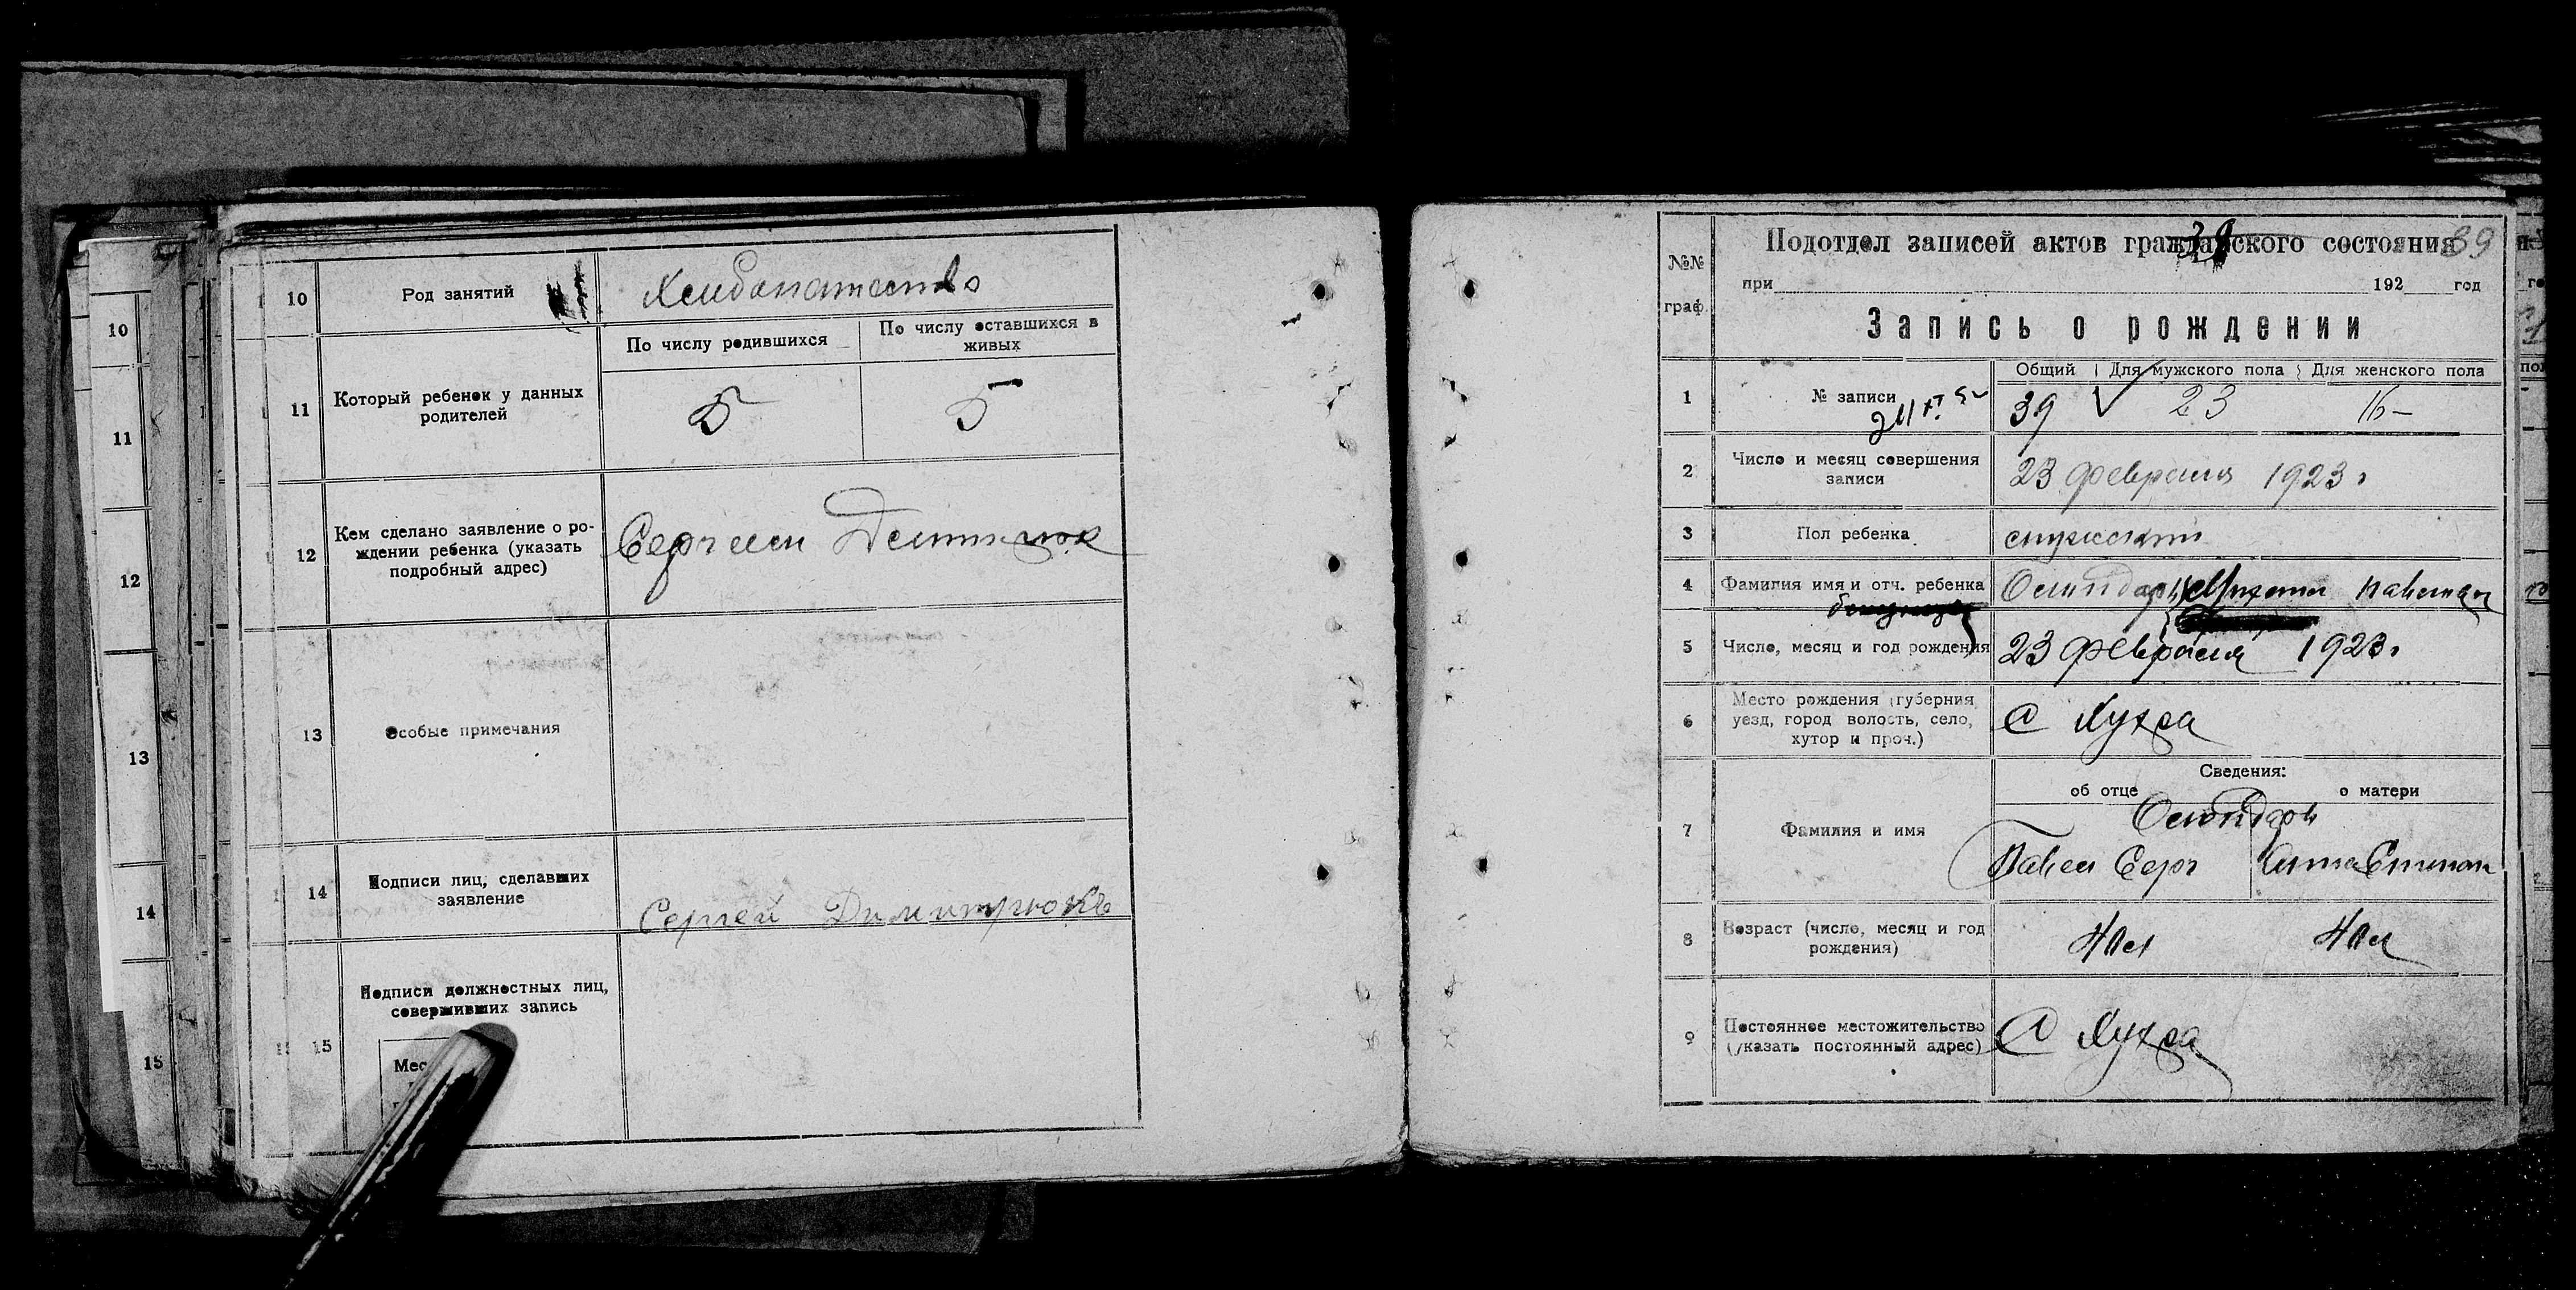 10
11
12
13
14
15
10
Род занятий
11
Который ребенок у данных
родителей
По числу родившихся
По числу оставшихся в
живых
5
5
12
Кем сделано заявление о ро-
ждении ребенка (указать
подробный адрес)
Сергеем
13
Особые примечания
14
Подписи лиц, сделавших
заявление
Сергей Димитрюкъ
15
Подписи должностных лиц,
совершивших запись
Мес
39
39
№№
граф.
Подотдел записей актов гражданского состояния
при 192 год
Запись о рождении
1
№ записи
Общий Для мужского пола Для женского пола
39 23 16-
2
Число и месяц совершения
записи
23 февраля 1923 г
3
Пол ребенка
мужский
4
Фамилия имя и отч. ребенка
5
Число, месяц и год рождения
23 февраля 1923 г
6
Место рождения (губерния,
уезд, город волость, село,
хутор и проч.)
с
7
Фамилия и имя
Сведения:
об отце о матери
Павел Серг
Анна Степан
8
Возраст (число, месяц и год
рождения)
40 л 40 л
9
Постоянное местожительство
(указать постоянный адрес)
с